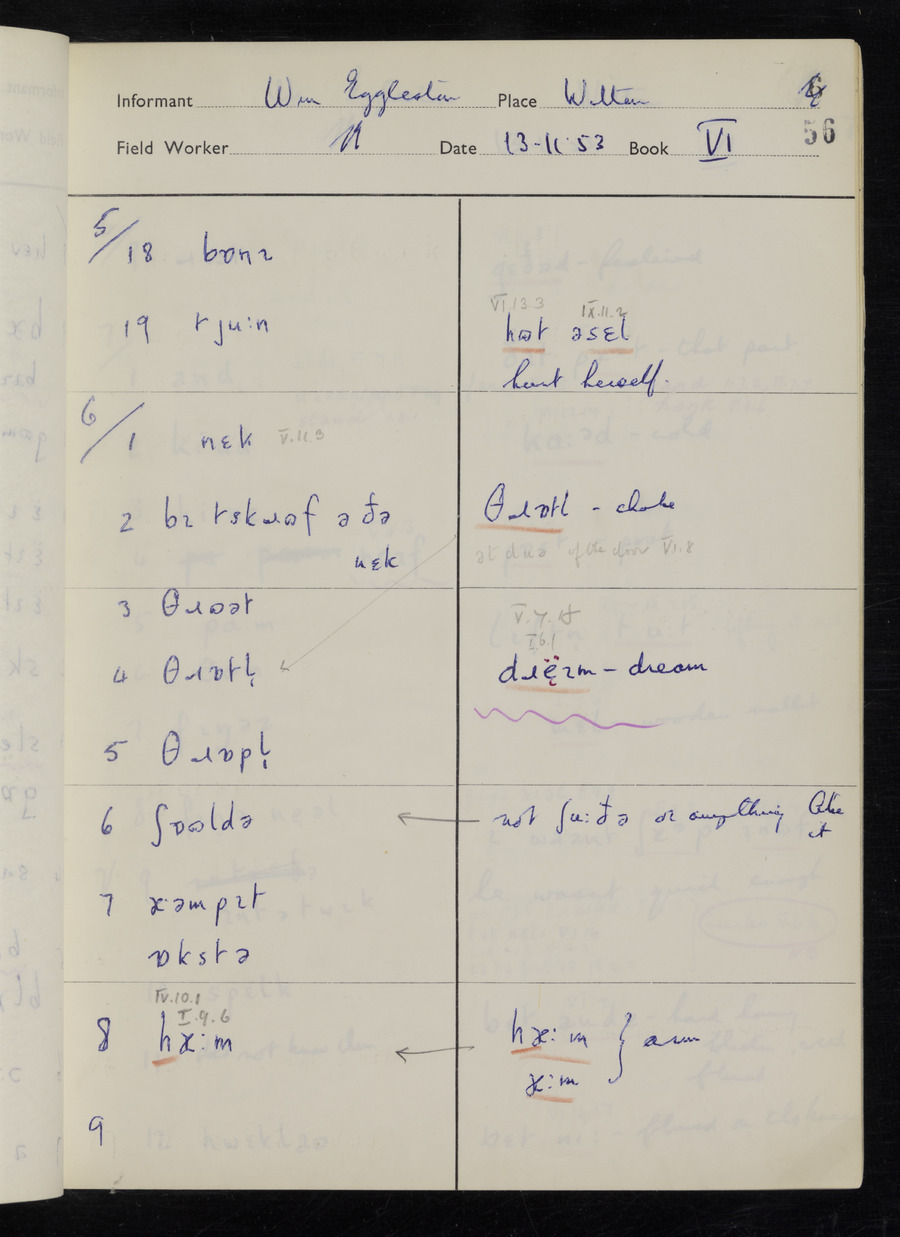 Informant Wm Eggleston Place Witton 6
Field Worker Date 13-11-53 Book VI 56
5/18 bɒnɪ
19 tjuːn
VI.13.3 IX.11.2
hɷt əsɛl
hurt herself.
6/1 nɛk V.11.3
2 bɪ t skɹɷf ə ðə
nɛk
θɹɒtl - choke
at duə of the door VI.8
3 θɹɷət
4 θɹɒtl̩
V.7.18
I.6.1
dɹëɪm - dream
5 θɹɒpl̩
6 ʃɒɷldə
not ʃuːðə or anything like
it
7 æəmpɪt
ɒkstə
IV.10.1
I.9.6
8 hæːm
hæːm } arm
æːm
9